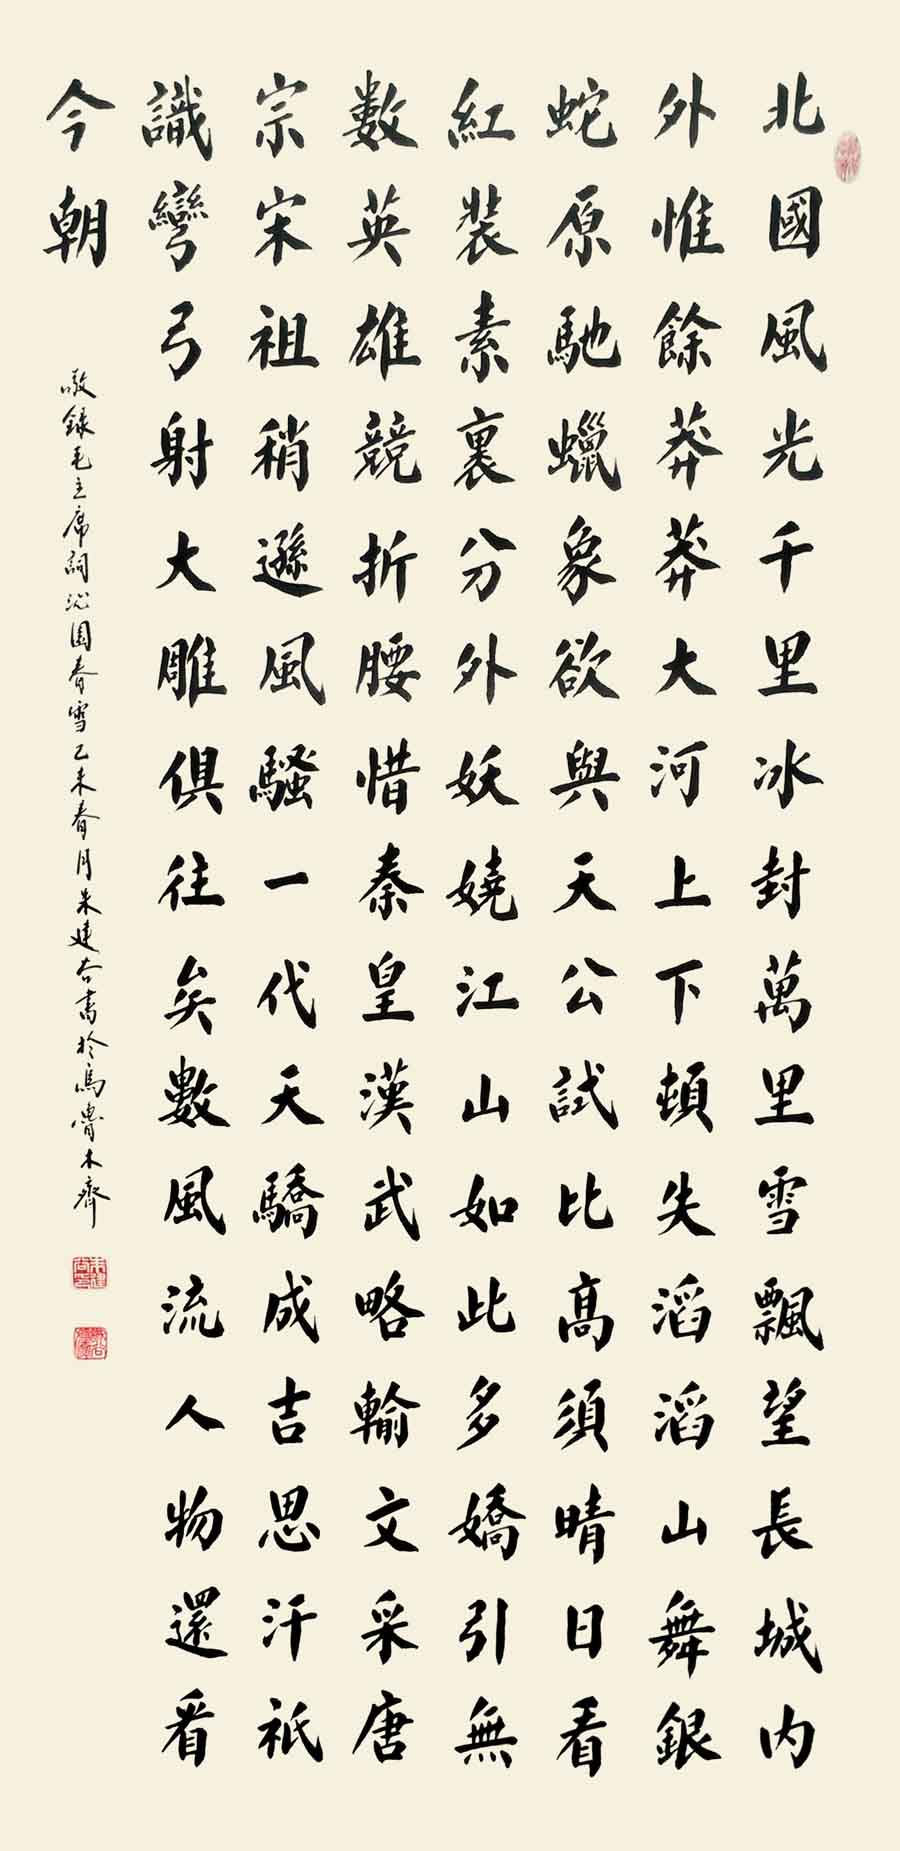 北國風光千里冰封萬里雪飄望長城内
外惟餘莽莽大河上下頓失滔滔山舞銀
蛇原馳蠟象欲與天公試比高須晴日看
紅裝素裏分外妖嬈江山如此多嬌引無
數英雄競折腰惜秦皇漢武略輸文采唐
宗宋祖稍遜風騷一代天驕成吉思汗祇
識彎弓射大雕俱往矣數風流人物還看
今朝
敬録毛主席詞沁園春雪乙未春月朱建書於烏魯木齊